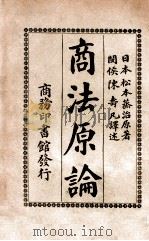 日本松本烝治原著
閩侯陳壽凡譯述
商法原論
商務印書館發行
www.mtoou.info